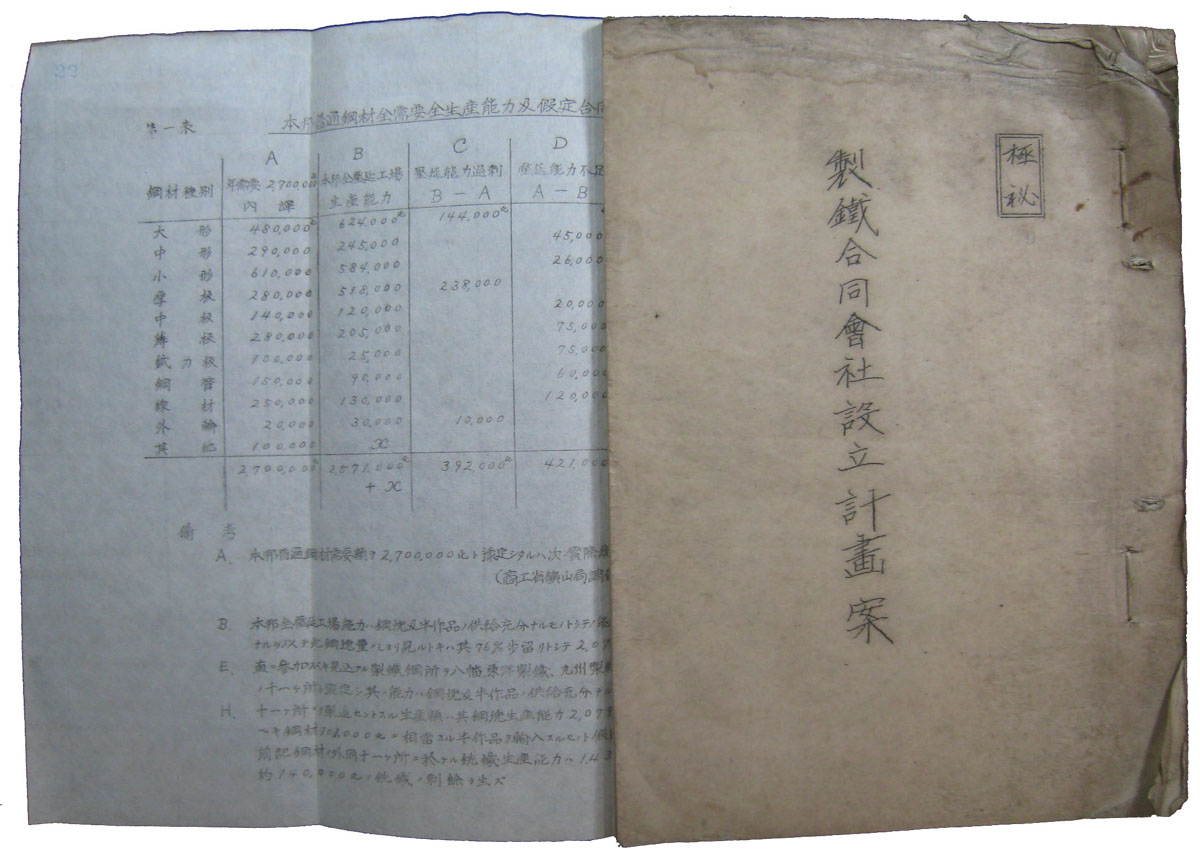 極秘
製鐵合同會社設立計畫案
22
第一表
本邦普通鋼材全需要全生産能力及假定合同
A B C D
鋼材種別 年需要 2,700,000 内譯 本邦全壓延工場生産能力 壓延能力過剰 B－A 壓延能力不足 A－B
大形 480,000 624,000 144,000
中形 290,000 245,000 45,000
小形 610,000 584,000 26,000
厚板 280,000 518,000 238,000
中板 140,000 120,000 20,000
薄板 280,000 205,000 75,000
鈑力板 100,000 25,000 75,000
鋼管 150,000 90,000 60,000
線材 250,000 130,000 120,000
外輪 20,000 30,000 10,000
其他 100,000 x
2,700,000 2,571,000 + x 392,000 421,000
備考
A. 本邦普通鋼材需要額ヲ2,700,000瓲ト豫定シタルハ次ノ實際
(商工省鑛山局調
B. 本邦全壓延工場能力ハ鋼塊及半作品ノ供給充分ナルモノトシテノ能
其76%歩留リトシテ2,07
E. 製鐵鋼所ヲ八幡、東洋製鐵、九州製
ノ十一ヶ所ト豫定シ其ノ能力ハ鋼塊及半作品ノ供給充分ナル
H. 十一ヶ所ヲ 生産額ハ其鋼塊生産能力2,079
相當スル半作品ヲ輸入スルモノト
前記鋼材ノ外同十一ヶ所ニ於ケル銑鐵生産能力ハ143
約140,000瓲ノ銑鐵ノ剰餘ヲ生ズ